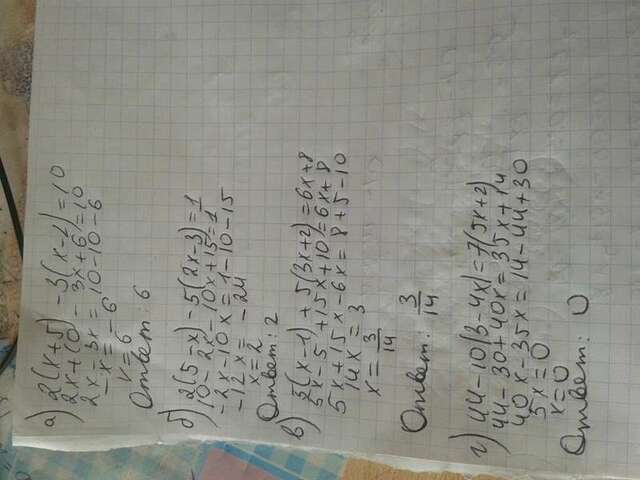 а) 2(x+5)-3(x-2)=10
2x+10-3x+6=10
2x-3x=10-10-6
-x=-6
x=6
Ответ: 6
б) 2(5-x)-5(2x-3)=1
10-2x-10x+15=1
-2x-10x=1-10-15
-12x=-24
x=2
Ответ: 2
в) 5(x-1)+5(3x+2)=6x+8
5x-5+15x+10=6x+8
5x+15x-6x=8+5-10
14x=3
x=3/14
Ответ: 3/14
г) 44-10(3-4x)=7(5x+2)
44-30+40x=35x+14
40x-35x=14-44+30
5x=0
x=0
Ответ: 0